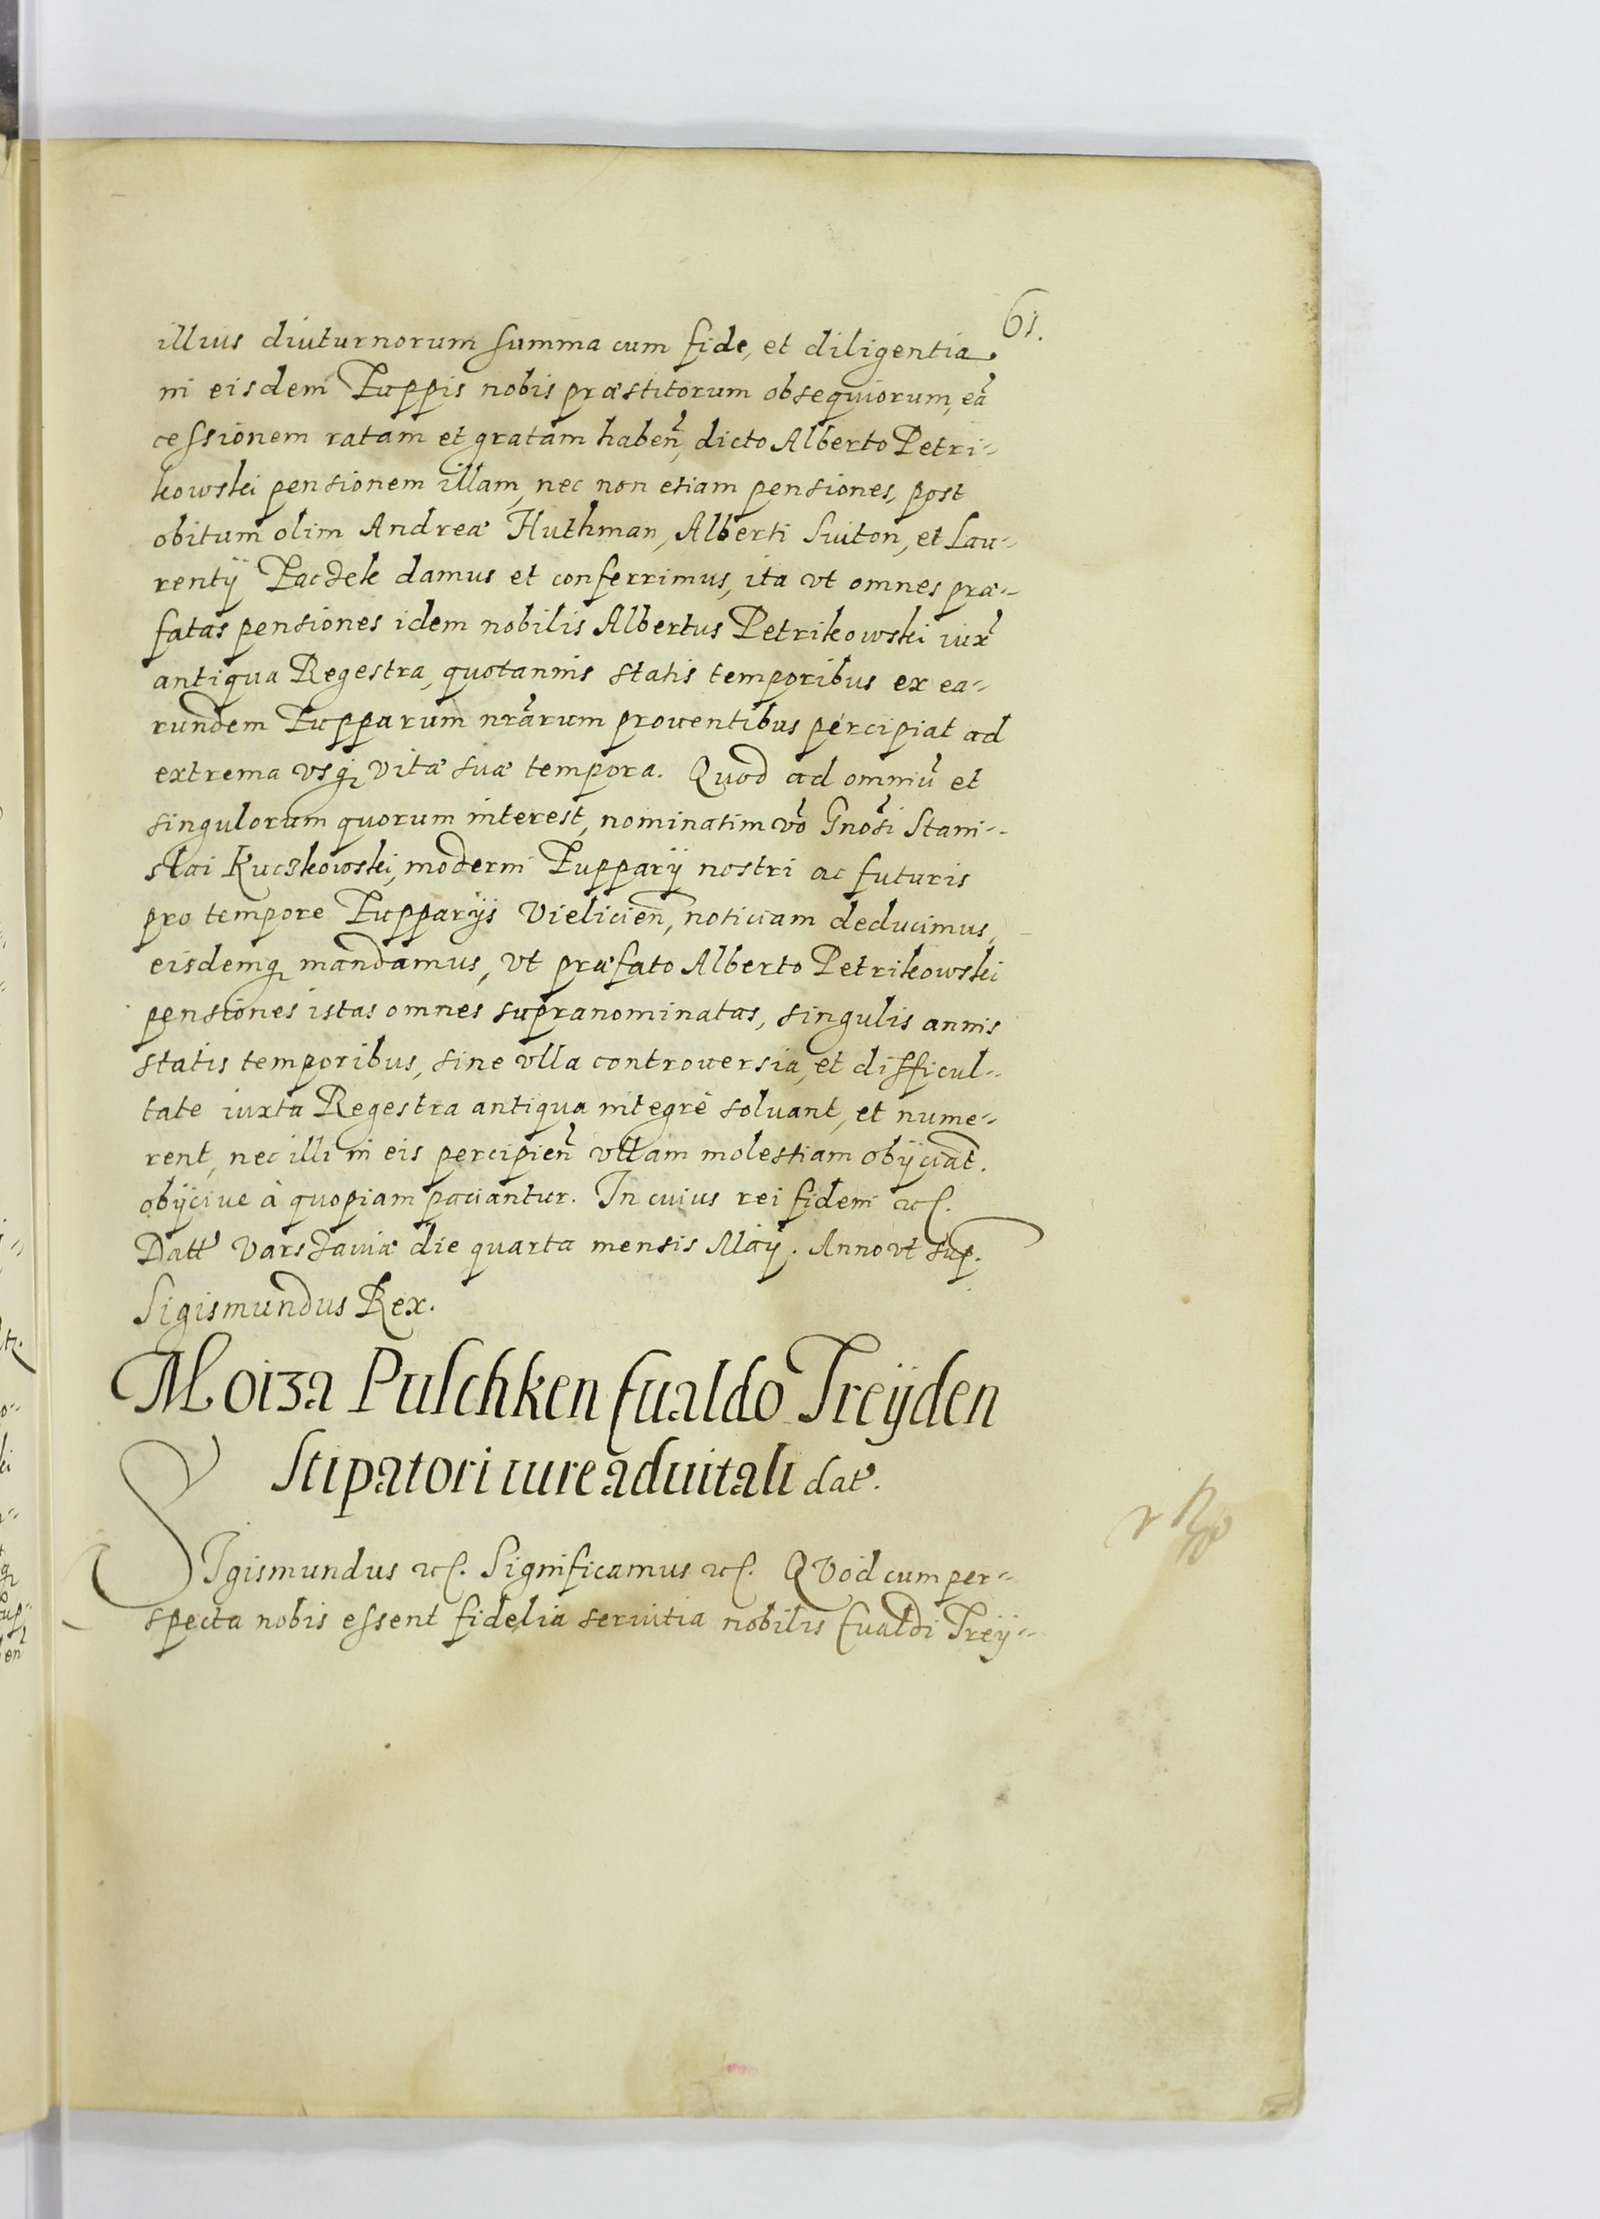 61.
illius diuturnorum summa cum fide, et diligentia
in eisdem Zuppis nobis præstitorum obsequiorum, eã
cessionem ratam et gratam haben̉, dicto Alberto Petri-
kowski pensionem illam, nec non etiam pensiones, post
obitum olim Andreæ Huthman, Alberti Suiton, et Lau-
rentÿ Zacdek damus et conferrimus, ita vt omnes præ-
fatas pensiones idem nobilis Albertus Petrikowski iux̉
antiqua Regestra, quotannis statis temporibus ex ea-
rundem Zupparum nrãrum prouentibus percipiat ad
extrema vsq́ vitæ suæ tempora. Quod ad omniũ et
singulorum quorum interest, nominatim võ Gnõsi Stani-
slai Kuczkowski, moderni Zupparÿ nostri ac futuris
pro tempore Zupparÿs Vielicien̉, noticiam deducimus,
eisdemq́ mandamus, vt præfato Alberto Petrikowski
pensiones istas omnes supranominatas, singulis annis
statis temporibus, sine vlla controuersia, et difficul-
tate iuxta Regestra antiqua integrè soluant, et nume-
rent, nec illi in eis percipien̉ vllam molestiam obÿciat.
obÿciue à quopiam paciantur. In cuius rei fidem etc.
Datt̉ Varszauiæ die quarta mensis Maÿ. Anno vt sup.
Sigismundus Rex.
Moiza Pulschken Eualdo Treÿden
Stipatori iure aduitali dat̉.
SIgismundus etc. Significamus etc. QVod cum per-
specta nobis essent fidelia seruitia nobilis Eualdi Treÿ-